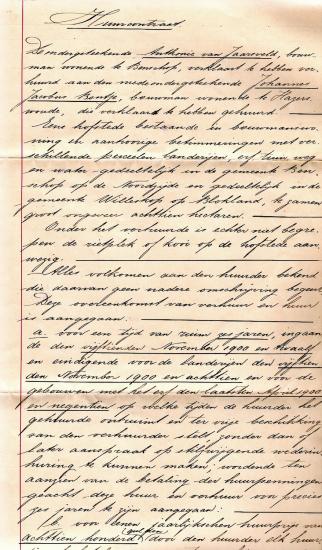 Huurcontract.
De ondergeteekende Anthonie van Jaarsveld, bouw-
man wonende te Benschop, verklaart te hebben ver-
huurd aan den medeondergeteekende Johannes
Jacobus Bentje, bouwman wonende te Hazers-
woude, die verklaard te hebben gehuurd.
Eene hofstede bestaande in bouwmanswo-
ning en aanhoorige betimmeringen met ver-
schillende perceelen landerijen, erf, tuin, weg
en water gedeeltelijk in de gemeente Ben-
schop op de Noordzijde en gedeeltelijk in de
gemeente Willeskop op Blokland, te zamen
groot ongeveer achttien hectaren.
Onder het verhuurde is echter niet begre-
pen de rietplek of kooi op de hofstede aan-
wezig.
Alles volkomen aan den huurder bekend
die daarvan geen nadere omschrijving begeert
Deze overeenkomst van verhuur en huur
is aangegaan:
a. voor een tijd van ruim zes jaren, ingaan-
de den vijftienden November 1900 en twaalf
en eindigende voor de landerijen den vijftien
den November 1900 en achttien en voor de
gebouwen met het erf den laatsten April 1900
en negentien op welke tijden de huurder het
gehuurde ontruimt en ter vrije beschikking
van den verhuurder stelt, zonder dan of
later aanspraak op stilzwijgende wederin-
huring te kunnen maken; wordende ten
aanzien van de betaling der huurpenningen
geacht deze huur en verhuur voor precies
zes jaren te zijn aangegaan:
b. voor eenen jaarlijkschen huurprijs van
achttien honderd gulden door den huurder elk huur